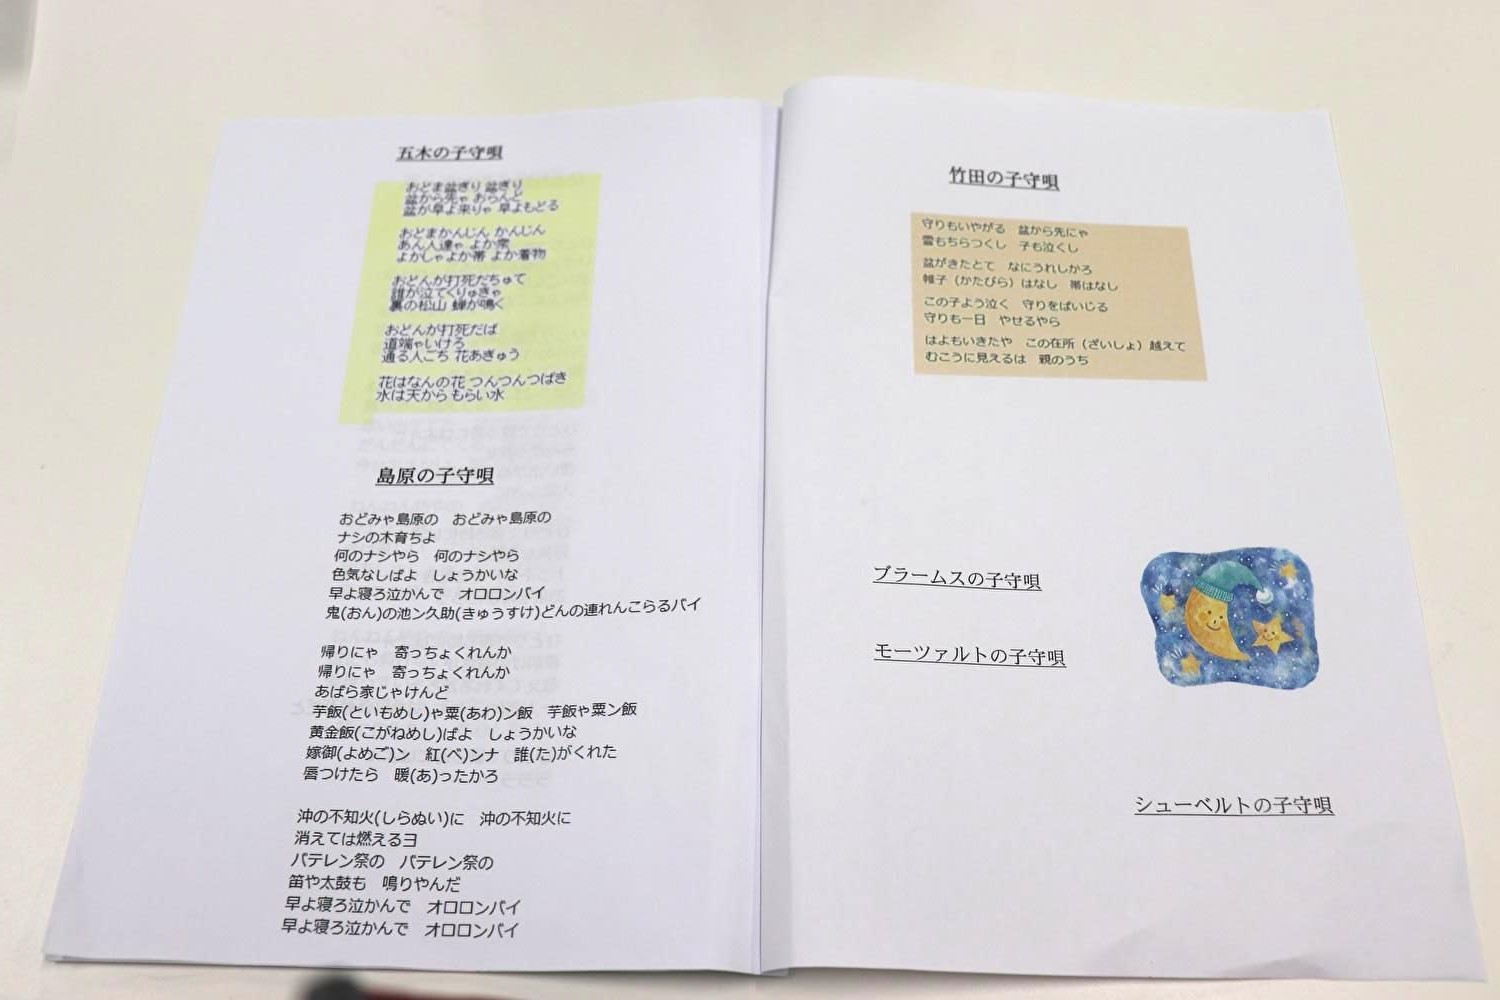 五木の子守唄
おどま盆ぎり 盆ぎり
盆から先ゃ おらんど
盆が早よ来りゃ 早よもどる
おどまかんじん かんじん
あん人達ゃ よか衆
よかしゃよか帯 よか着物
おどんが打死だちゅて
誰が泣てくりゅきゃ
裏の松山 蝉が鳴く
おどんが打死だば
道端ゃいけろ
通る人ごち 花あぎゅう
花はなんの花 つんつんつばき
水は天から もらい水
島原の子守唄
おどみゃ島原の　おどみゃ島原の
ナシの木育ちよ
何のナシやら　何のナシやら
色気なしばよ　しょうかいな
早よ寝ろ泣かんで　オロロンバイ
鬼(おん)の池ン久助(きゅうすけ)どんの連れんこらるバイ
帰りにゃ　寄っちょくれんか
帰りにゃ　寄っちょくれんか
あばら家じゃけんど
芋飯(といもめし)ゃ粟(あわ)ン飯　芋飯ゃ粟ン飯
黄金飯(こがねめし)ばよ　しょうかいな
嫁御(よめご)ン　紅(べ)ンナ　誰(た)がくれた
唇つけたら　暖(あ)ったかろ
沖の不知火(しらぬい)に　沖の不知火に
消えては燃えるヨ
バテレン祭の　バテレン祭の
笛や太鼓も　鳴りやんだ
早よ寝ろ泣かんで　オロロンバイ
早よ寝ろ泣かんで　オロロンバイ
竹田の子守唄
守りもいやがる　盆から先にゃ
雪もちらつくし　子も泣くし
盆がきたとて　なにうれしかろ
帷子（かたびら）はなし　帯はなし
この子よう泣く　守りをばいじる
守りも一日　やせるやら
はよもいきたや　この在所（ざいしょ）越えて
むこうに見えるは　親のうち
ブラームスの子守唄
モーツァルトの子守唄
シューベルトの子守唄